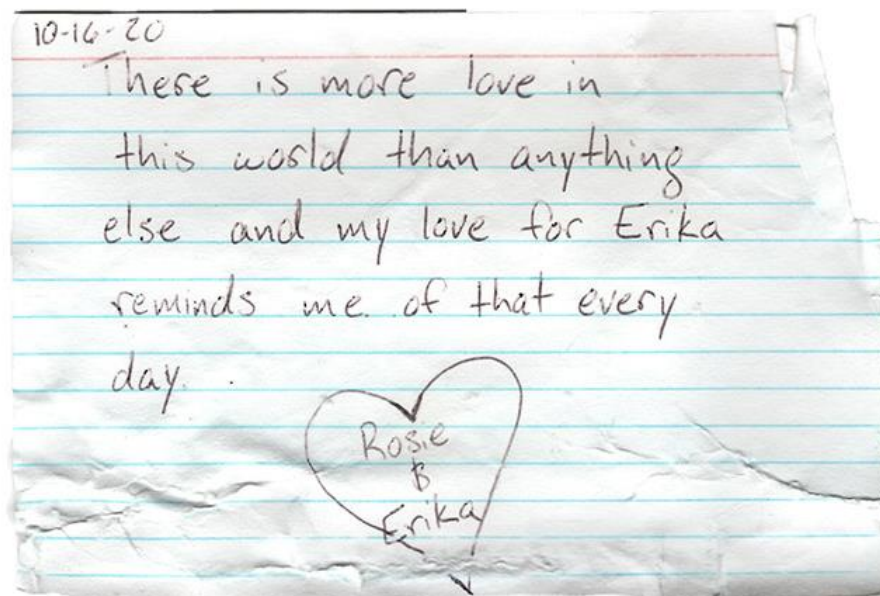 10-16-20
There is more love in
this world than anything
else and my love for Erika
reminds me of that every
day.
Rosie
&
Erika